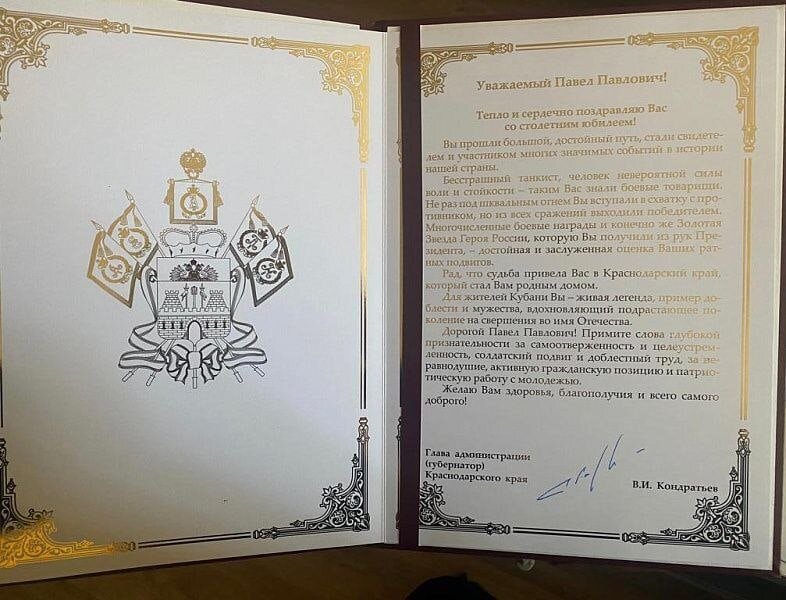 Уважаемый Павел Павлович!
Тепло и сердечно поздравляю Вас
со столетним юбилеем!
Вы прошли большой, достойный путь, стали свидете-
лем и участником многих значимых событий в истории
нашей страны.
Бесстрашный танкист, человек невероятной силы
воли и стойкости – таким Вас знали боевые товарищи.
Не раз под шквальным огнем Вы вступали в схватку с про-
тивником, но из всех сражений выходили победителем.
Многочисленные боевые награды и конечно же Золотая
Звезда Героя России, которую Вы получили из рук Пре-
зидента, – достойная и заслуженная оценка Ваших рат-
ных подвигов.
Рад, что судьба привела Вас в Краснодарский край,
который стал Вам родным домом.
Для жителей Кубани Вы – живая легенда, пример до-
блести и мужества, вдохновляющий подрастающее по-
коление на свершения во имя Отечества.
Дорогой Павел Павлович! Примите слова глубокой
признательности за самоотверженность и целеустрем-
ленность, солдатский подвиг и доблестный труд, за не-
равнодушие, активную гражданскую позицию и патрио-
тическую работу с молодежью.
Желаю Вам здоровья, благополучия и всего самого
доброго!
Глава администрации
(губернатор)
Краснодарского края
В.И. Кондратьев